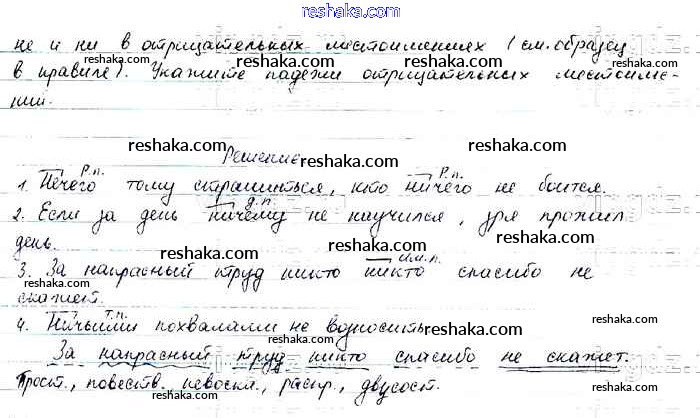 reshaka.com
не и ни в отрицательных местоимениях (см. образец
в правиле). Укажите падежи отрицательных местоиме-
ний.
reshaka.com
reshaka.com
reshaka.com
Решение
Р.п. Р.п.
1. Нечего тому страшиться, кто ничего не боится.
reshaka.com
reshaka.com
Д.п.
2. Если за день ничему не научился, зря прожил
день.
reshaka.com
reshaka.com
И.п.
3. За напрасный труд никто никто спасибо не
скажет.
reshaka.com
reshaka.com
Т.п.
4. Ничьими похвалами не возносить
reshaka.com
За напрасный труд никто спасибо не скажет.
reshaka.com
Прост., повеств., невоскл., распр., двусост.
reshaka.com